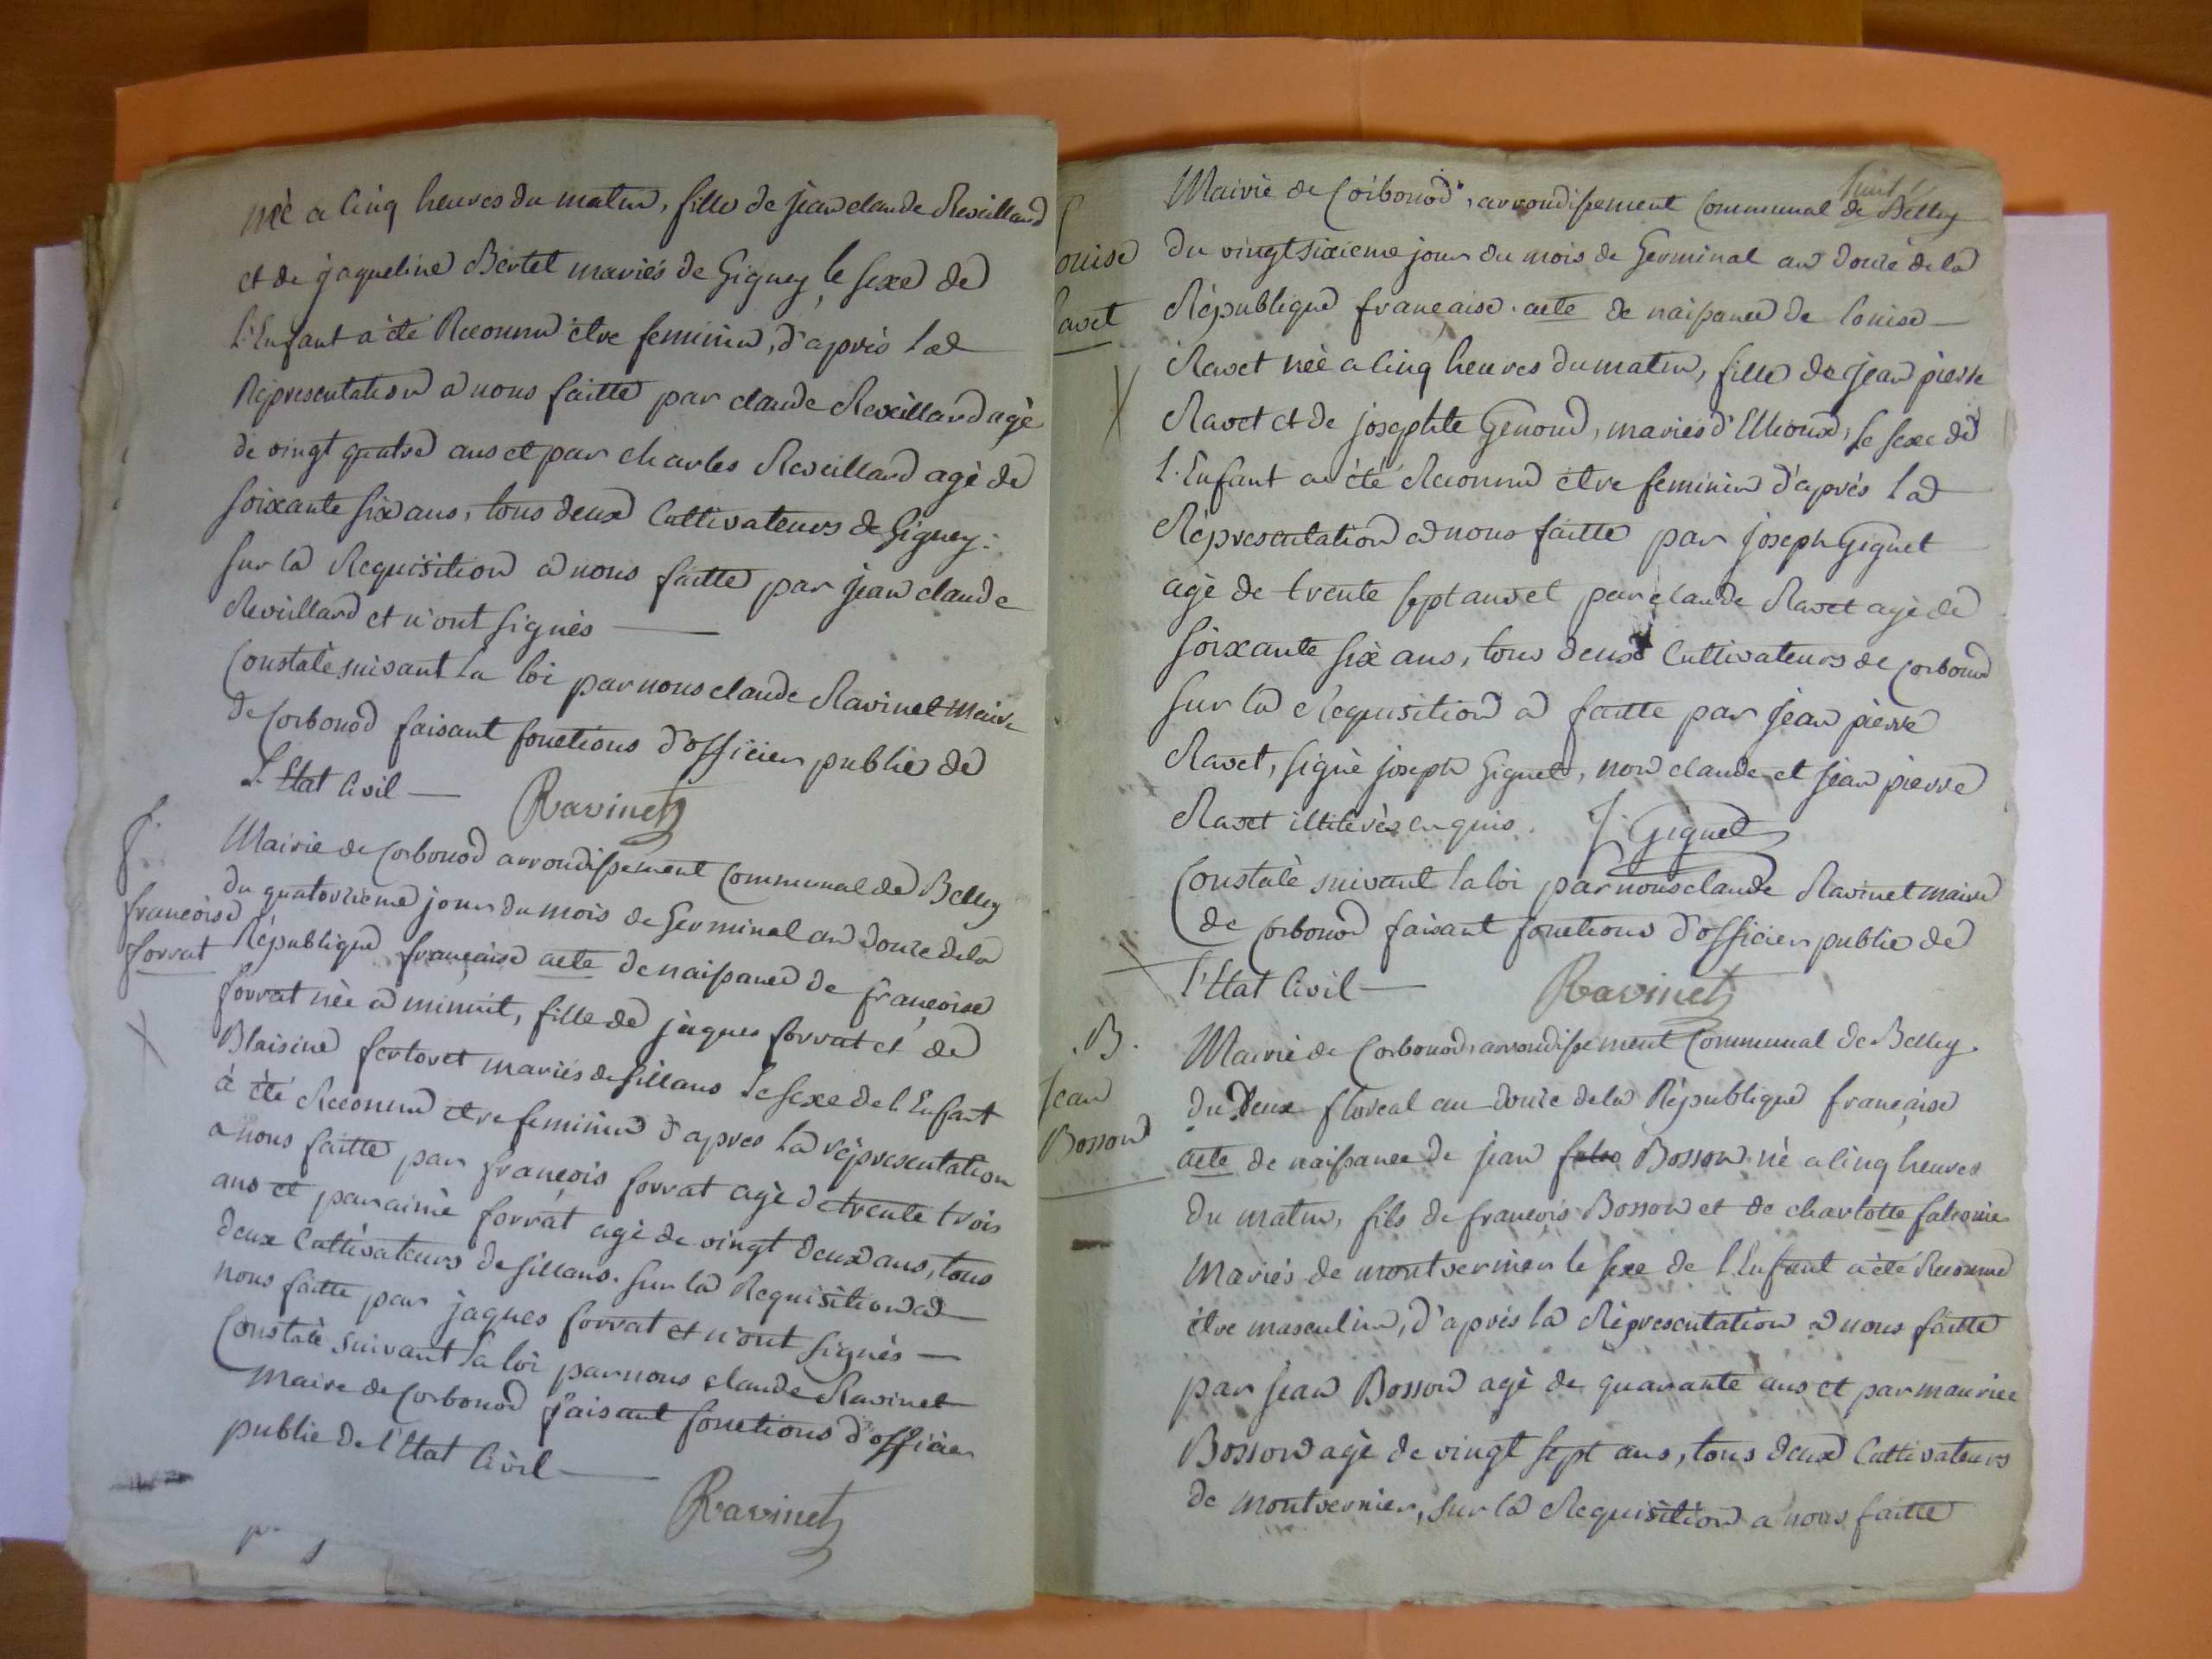 née a Cinq heures du matin, fille de jean claude Reveillard
et de jaqueline Bertet mariés de Gigney, le sexe de
l'Enfant a été Reconnu être feminin, d'après la
Répresentation a nous faitte par claude Reveillard agé
de vingt quatre ans et par charles Reveillard agé de
soixante six ans, tous deux Cultivateurs de Gigney.
sur la Requisition a nous faitte par jean claude
Reveillard et n'ont signés —
Constaté suivant la loi par nous claude Ravinet Maire
de Corbonod faisant fonctions d'officier public de
L'Etat Civil — Ravinet
f.
francoise
forrat
Mairie de Corbonod arrondissement Communal de Belley
du quatorzieme jour du mois de Germinal an douze de la
République française acte de naissance de françoise
forrat née a minuit, fille de jaques forrat et de
Blaisine fertoret mariés de sillans Le sexe de l'Enfant
à été Reconnu être feminin d'apres la représentation
a nous faitte par françois forrat agé de trente trois
ans et par aimé forrat agé de vingt deux ans, tous
deux Cultivateurs de sillans. sur la Requisition a
nous faitte par jaques forrat et n'ont signés —
Constaté suivant la loi par nous claude Ravinet
Maire de Corbonod faisant fonctions d'officier
public de l'Etat Civil —
Ravinet
ouise
avet
Mairie de Corbonod, arrondissement Communal de Belley
du vingt sixieme jour du mois de Germinal an douze de la
République française. acte de naissance de louise —
Ravet née a Cinq heures du matin, fille de jean pierre
Ravet et de josephte Genoud, mariés d'Ethioux, Le sexe de
l'Enfant a été Reconnu être feminin d'après la
Répresentation a nous faitte par joseph Giguet
agé de trente sept ans et par claude Ravet agé de
soixante six ans, tous deux Cultivateurs de Corbonod
sur la Requisition a faitte par jean pierre
Ravet, signé joseph Giguet, non claude et jean pierre
Ravet illiterés enquis. J. Giguet
Constaté suivant la loi par nous claude Ravinet maire
de Corbonod faisant fonctions d'officier public de
l'Etat Civil — Ravinet
.B.
jean
Bosson
Mairie de Corbonod, arrondissement Communal de Belley.
du Deux floreal an douze de la République française
acte de naissance de jean Bosson né a Cinq heures
du matin, fils de françois Bosson et de charlotte falconie
Mariés de montvernier le sexe de l'Enfant a été Reconnu
être masculin, d'après la Répresentation a nous faitte
par jean Bosson agé de quarante ans et par maurice
Bosson agé de vingt sept ans, tous deux Cultivateurs
de montvernier, sur la Requisition a nous faitte